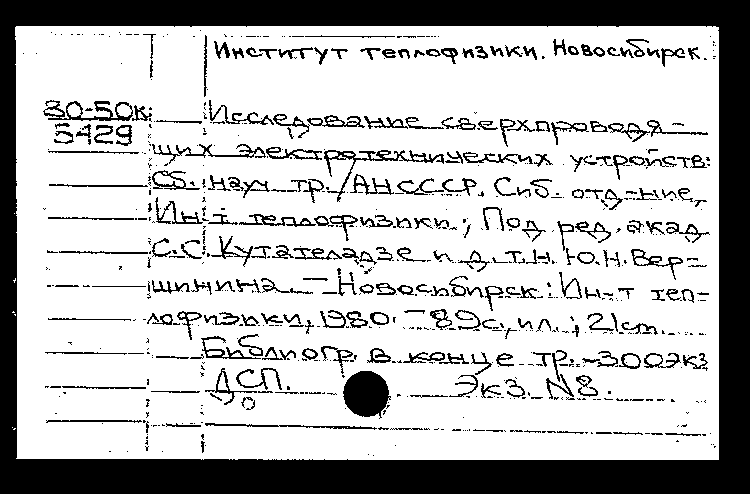 Институт теплофизики. Новосибирск.
80-50к:
5429
Исследование сверхпроводя-
щих электротехнических устройств:
Сб. науч тр./АН СССР. Сиб. отд-ние,
Ин-т теплофизики; Под ред. акад
С.С. Кутателадзе и д.т.н. Ю.Н. Вер-
шинина. — Новосибирск: Ин-т теп-
лофизики, 1980. — 89с., ил.; 21см.
Библиогр. в конце тр. - 300экз
ДСП. Экз. N8.